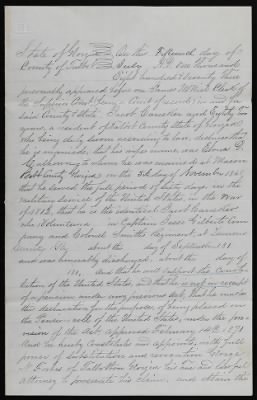 State of Georgia } On this Fifteenth day of
County of Talbot } July A.D. one thousand
Eight hundred & seventy three
personally appeared before me Clerk
of the Superior Court being a Court of record in and for
said County & State, Jacob aged Eighty two
years, a resident of Talbot County State of Georgia
who being duly sworn according to law, declares that
he is married, that his wife's name was
to whom he was married at Macon
Bibb County Georgia on the 3d day of November
that he served the full period of sixty days in the
military service of the United States in the War
of 1812, that he is the identical Jacob
who Volunteered in Captain Com-
pany and Colonel Regiment, at
County on about the day of September 181
and was honorably discharged about the day of
181, And that he will support the Consti-
tution of the United States, and that he is not in receipt
of a pension under any previous act, that he makes
this declaration for the purpose of being placed on
the Pension-roll of the United States, under the pro-
vision of the Act approved February 14th 1871
And he hereby Constitutes and appoints, with full
power of Substitution and revocation George
N. of Talbotton Georgia his true and lawful
attorney to prosecute his claim, and obtain the